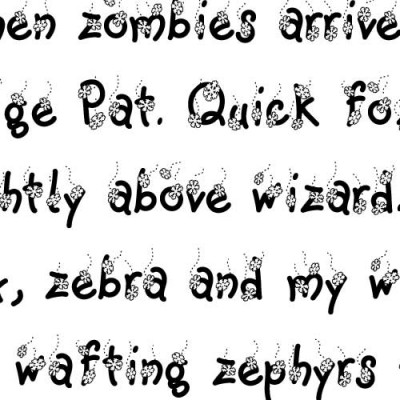 hen zombies arrive
ge Pat. Quick fo
htly above wizard.
, zebra and my w
wafting zephyrs